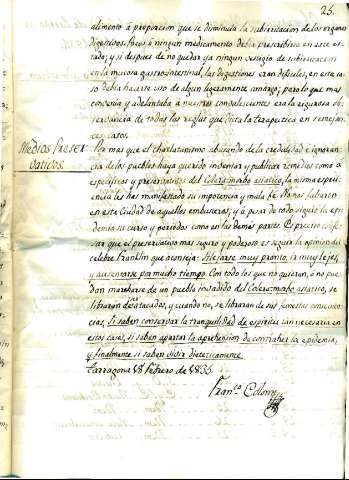 25.
alimento á proporcion que se disminuia la subirritacion de los organos
digestivos. Pocos ó ningun medicamento debia prescribirse en este es-
tado; y si despues de no quedar ya ningun vestigio de subirritacion
en la mucosa gastro-intestinal, las digestiones eran dificiles, en este ca-
so debia hacerse uso de algun ligeramente amargo; pero lo que mas
convenia y adelantaba á nuestros convalescientes era la rigurosa ob-
servancia de todas las reglas que dicta la terapeutica en semejan-
tes casos.
Medios Preser
vativos.
Por mas que el charlatanismo abusando de la credulidad é ignoran-
cia de los pueblos haya querido inventar y publicar remedios como á
especificos y preservativos del Colera-morbo asiatico, la misma esperi-
encia les has manifestado su impotencia y mala fe. No nos faltaron
en este Ciudad de aquellos embusteros, y á pesar de todo siguió la epi-
demia su curso y periodos como en las demas partes. Es preciso confe-
sar que el preservativo mas seguro y poderoso es seguir la opinion del
celebre Franklin que aconseja: Alejarse muy pronto, ir muy lejos,
y ausentarse por mucho tiempo. Con todo los que no quieran, ó no pue-
dan marcharse de un pueblo invadido del Colera-morbo asiatico, se
librarán de atacados, y cuando no, se libraran de sus funestas consecuen-
cias, si saben conservar la tranquilidad de espiritu tan necesaria en
estos casos, si saben apartar la aprehension de contraher la epidemia,
y finalmente si saben vivir dieteticamente.
Tarragona 18 Febrero de 1835.
Fran.co Colom